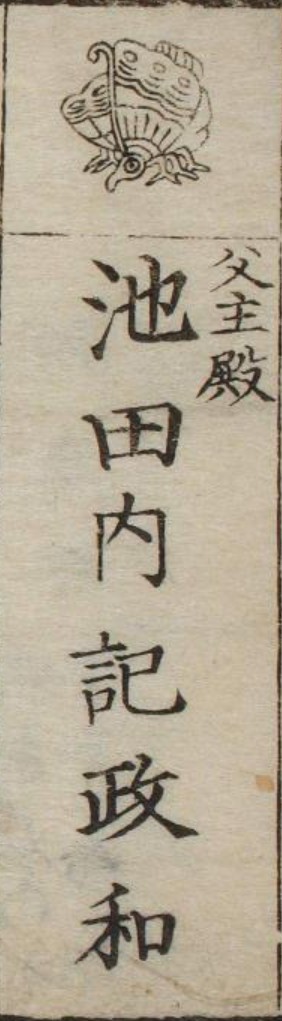 父主殿
池田内記政和